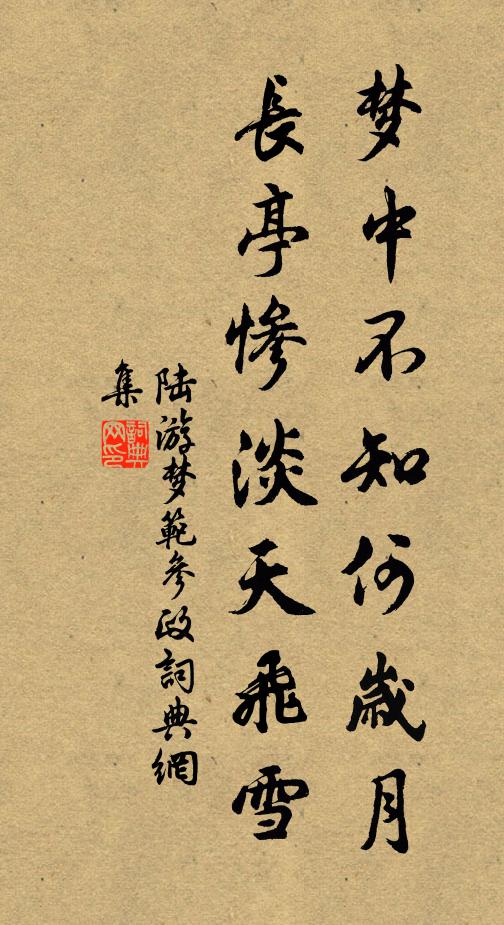 梦中不知何歲月
長亭惨淡天飛雪
陆游梦範参政詞典網
集
詞典网印